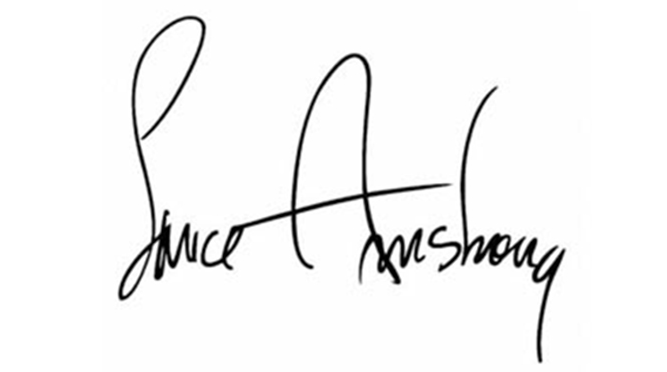 Lance Armstrong